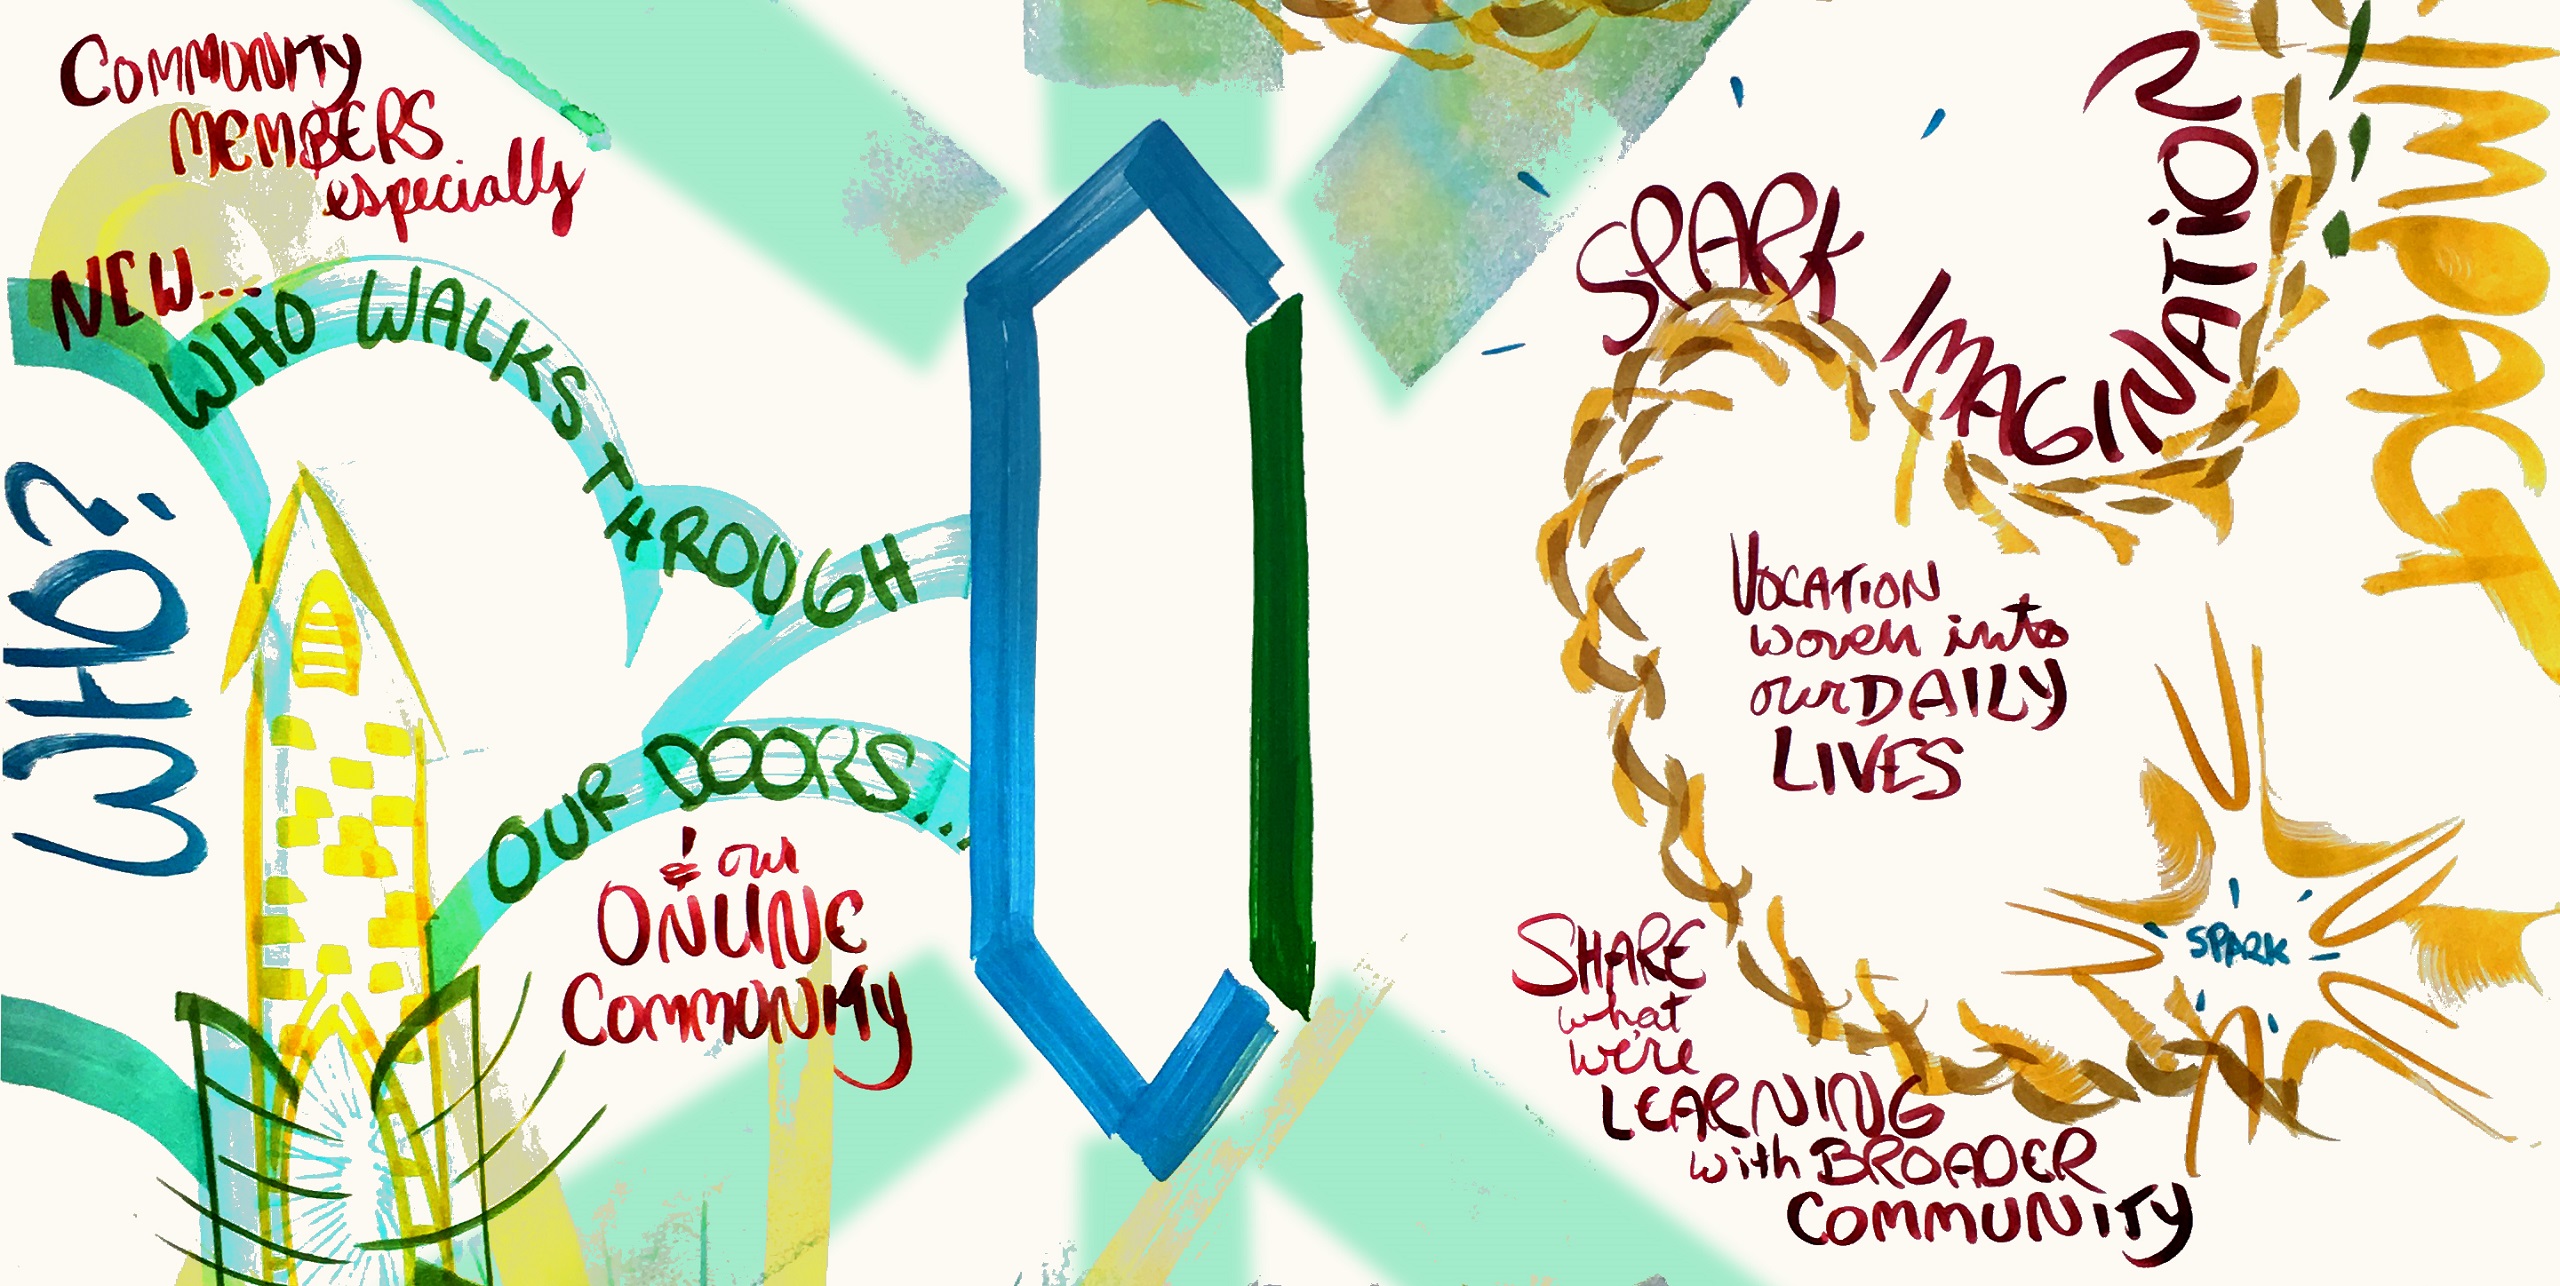 COMMUNITY
MEMBERS
especially
NEW...
WHO WALKS THROUGH
OUR DOORS...
& our
ONLINE
COMMUNITY
WHO?
SPARK IMAGINATION
IMPACT
VOCATION
woven into
our DAILY
LIVES
SPARK
SHARE
what
we're
LEARNING
with BROADER
COMMUNITY